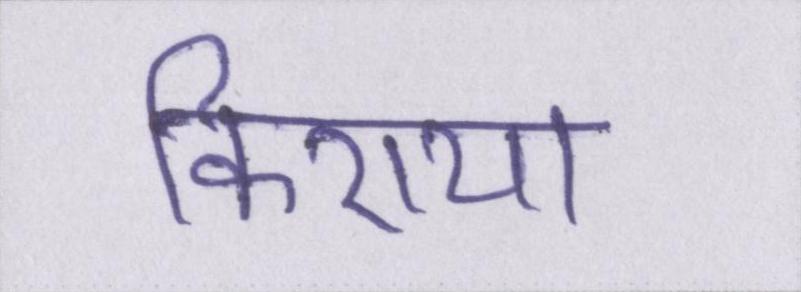 किराया